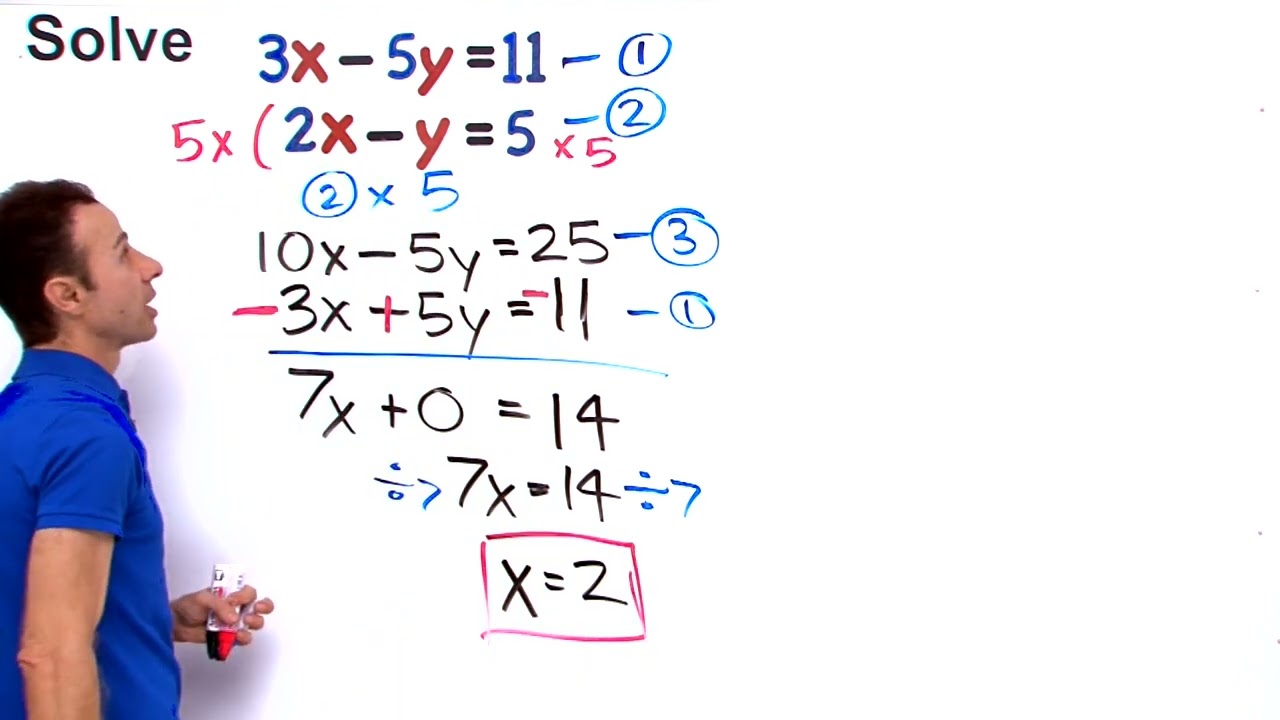 Solve 3x - 5y = 11 - ①
5x ( 2x - y = 5 x5 - ②
② x 5
10x - 5y = 25 - ③
- 3x + 5y = - 11 - ①
7x + 0 = 14
÷7 7x = 14 ÷7
x = 2